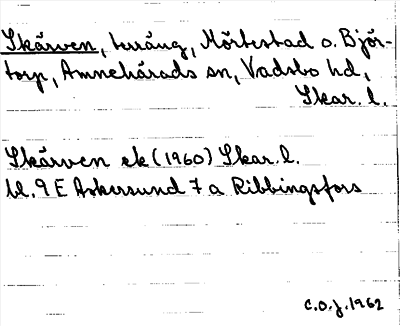 Skärven, terräng, Mörbestad o. Björ-
torp, Amnehärads sn, Vadsbo hd,
Skar. l.
Skärven ek (1960) Skar. l.
bl. 9 E Askersund 7 a Ribbingsfors
C.O.J. 1962